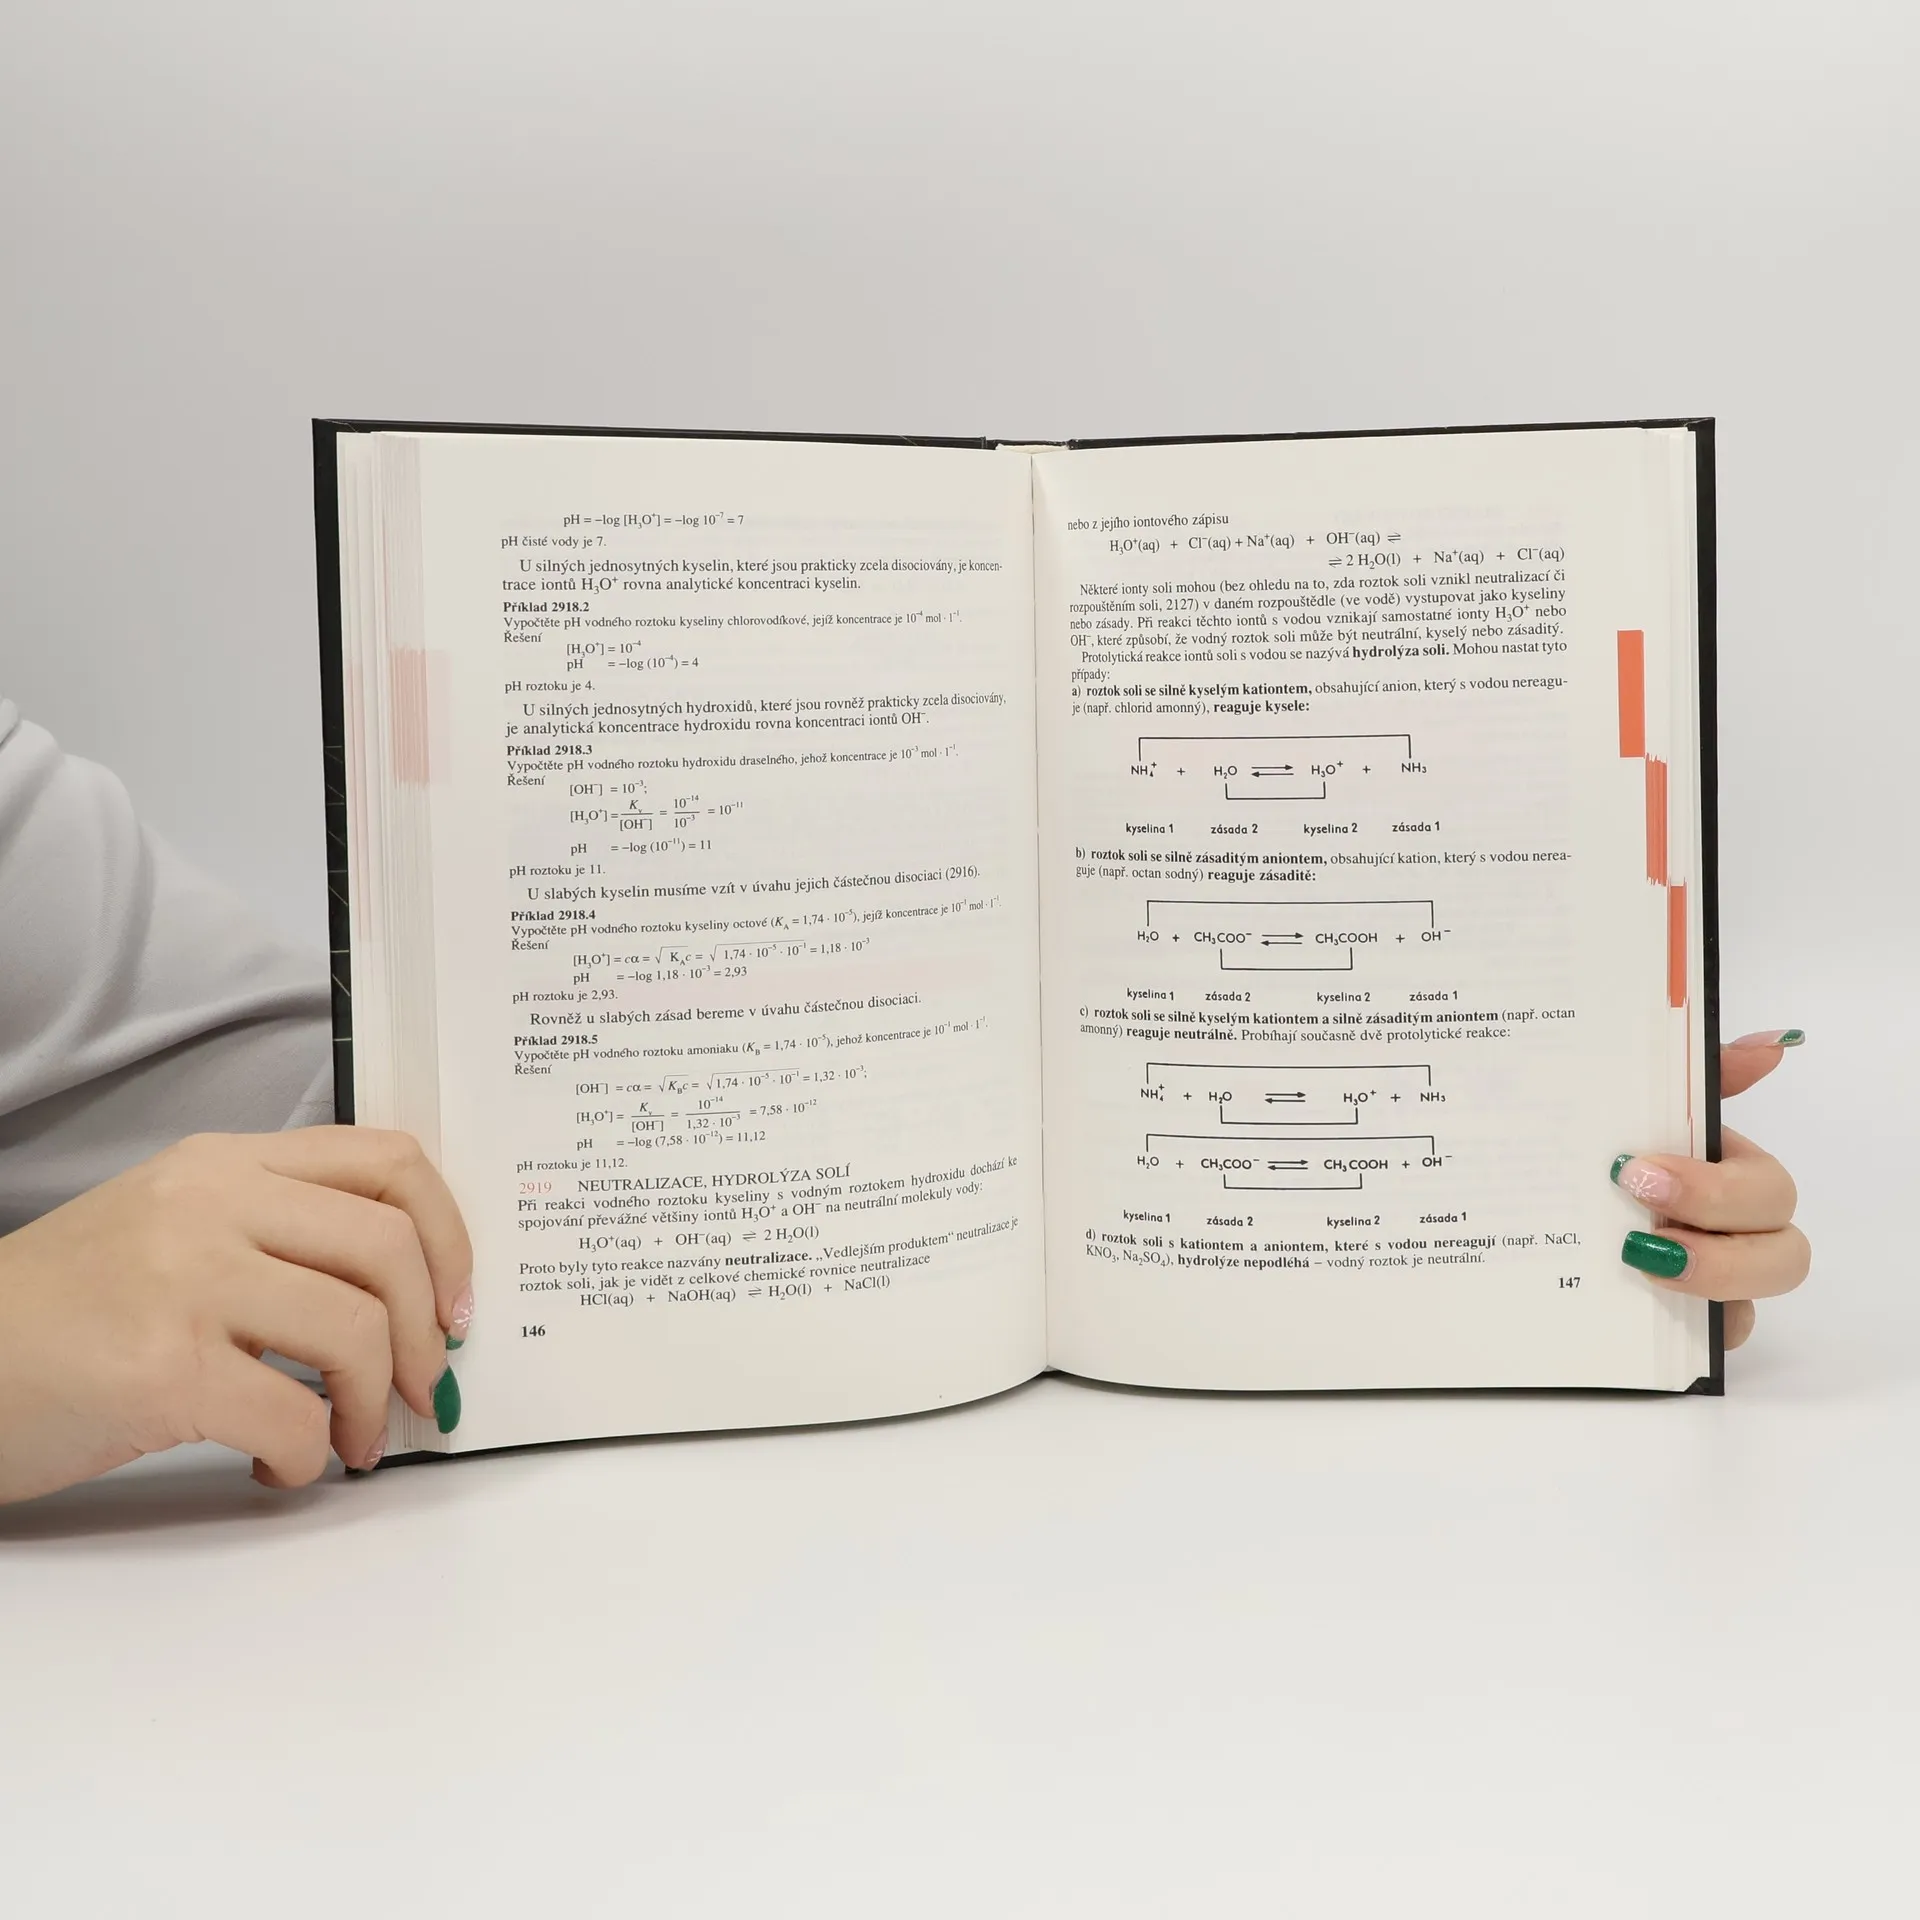 pH = –log [H₃O⁺] = –log 10⁻⁷ = 7
pH čisté vody je 7.
U silných jednosytných kyselin, které jsou prakticky zcela disociovány, je koncen-
trace iontů H₃O⁺ rovna analytické koncentraci kyselin.
Příklad 2918.2
Vypočtěte pH vodného roztoku kyseliny chlorovodíkové, jejíž koncentrace je 10⁻⁴ mol · l⁻¹.
Řešení
[H₃O⁺] = 10⁻⁴
pH = –log (10⁻⁴) = 4
pH roztoku je 4.
U silných jednosytných hydroxidů, které jsou rovněž prakticky zcela disociovány,
je analytická koncentrace hydroxidu rovna koncentraci iontů OH⁻.
Příklad 2918.3
Vypočtěte pH vodného roztoku hydroxidu draselného, jehož koncentrace je 10⁻³ mol · l⁻¹.
Řešení
[OH⁻] = 10⁻³;
[H₃O⁺] = Kᵥ / [OH⁻] = 10⁻¹⁴ / 10⁻³ = 10⁻¹¹
pH = –log (10⁻¹¹) = 11
pH roztoku je 11.
U slabých kyselin musíme vzít v úvahu jejich částečnou disociaci (2916).
Příklad 2918.4
Vypočtěte pH vodného roztoku kyseliny octové (K_A = 1,74 · 10⁻⁵), jejíž koncentrace je 10⁻¹ mol · l⁻¹.
Řešení
[H₃O⁺] = cα = √K_Ac = √1,74 · 10⁻⁵ · 10⁻¹ = 1,18 · 10⁻³
pH = –log 1,18 · 10⁻³ = 2,93
pH roztoku je 2,93.
Rovněž u slabých zásad bereme v úvahu částečnou disociaci.
Příklad 2918.5
Vypočtěte pH vodného roztoku amoniaku (K_B = 1,74 · 10⁻⁵), jehož koncentrace je 10⁻¹ mol · l⁻¹.
Řešení
[OH⁻] = cα = √K_Bc = √1,74 · 10⁻⁵ · 10⁻¹ = 1,32 · 10⁻³;
[H₃O⁺] = Kᵥ / [OH⁻] = 10⁻¹⁴ / 1,32 · 10⁻³ = 7,58 · 10⁻¹²
pH = –log (7,58 · 10⁻¹²) = 11,12
pH roztoku je 11,12.
2919 NEUTRALIZACE, HYDROLÝZA SOLÍ
Při reakci vodného roztoku kyseliny s vodným roztokem hydroxidu dochází ke
spojování převážné většiny iontů H₃O⁺ a OH⁻ na neutrální molekuly vody:
H₃O⁺(aq) + OH⁻(aq) ⇌ 2 H₂O(l)
Proto byly tyto reakce nazvány neutralizace. „Vedlejším produktem“ neutralizace je
roztok soli, jak je vidět z celkové chemické rovnice neutralizace
HCl(aq) + NaOH(aq) ⇌ H₂O(l) + NaCl(l)
146
nebo z jejího iontového zápisu
H₃O⁺(aq) + Cl⁻(aq) + Na⁺(aq) + OH⁻(aq) ⇌
⇌ 2 H₂O(l) + Na⁺(aq) + Cl⁻(aq)
Některé ionty soli mohou (bez ohledu na to, zda roztok soli vznikl neutralizací či
rozpouštěním soli, 2127) v daném rozpouštědle (ve vodě) vystupovat jako kyseliny
nebo zásady. Při reakci těchto iontů s vodou vznikají samostatné ionty H₃O⁺ nebo
OH⁻, které způsobí, že vodný roztok soli může být neutrální, kyselý nebo zásaditý.
Protolytická reakce iontů soli s vodou se nazývá hydrolýza soli. Mohou nastat tyto
případy:
a) roztok soli se silně kyselým kationtem, obsahující anion, který s vodou nereagu-
je (např. chlorid amonný), reaguje kysele:
NH₄⁺ + H₂O ⇌ H₃O⁺ + NH₃
kyselina 1 zásada 2 kyselina 2 zásada 1
b) roztok soli se silně zásaditým aniontem, obsahující kation, který s vodou nerea-
guje (např. octan sodný) reaguje zásaditě:
H₂O + CH₃COO⁻ ⇌ CH₃COOH + OH⁻
kyselina 1 zásada 2 kyselina 2 zásada 1
c) roztok soli se silně kyselým kationtem a silně zásaditým aniontem (např. octan
amonný) reaguje neutrálně. Probíhají současně dvě protolytické reakce:
NH₄⁺ + H₂O ⇌ H₃O⁺ + NH₃
H₂O + CH₃COO⁻ ⇌ CH₃COOH + OH⁻
kyselina 1 zásada 2 kyselina 2 zásada 1
d) roztok soli s kationtem a aniontem, které s vodou nereagují (např. NaCl,
KNO₃, Na₂SO₄), hydrolýze nepodléhá – vodný roztok je neutrální.
147